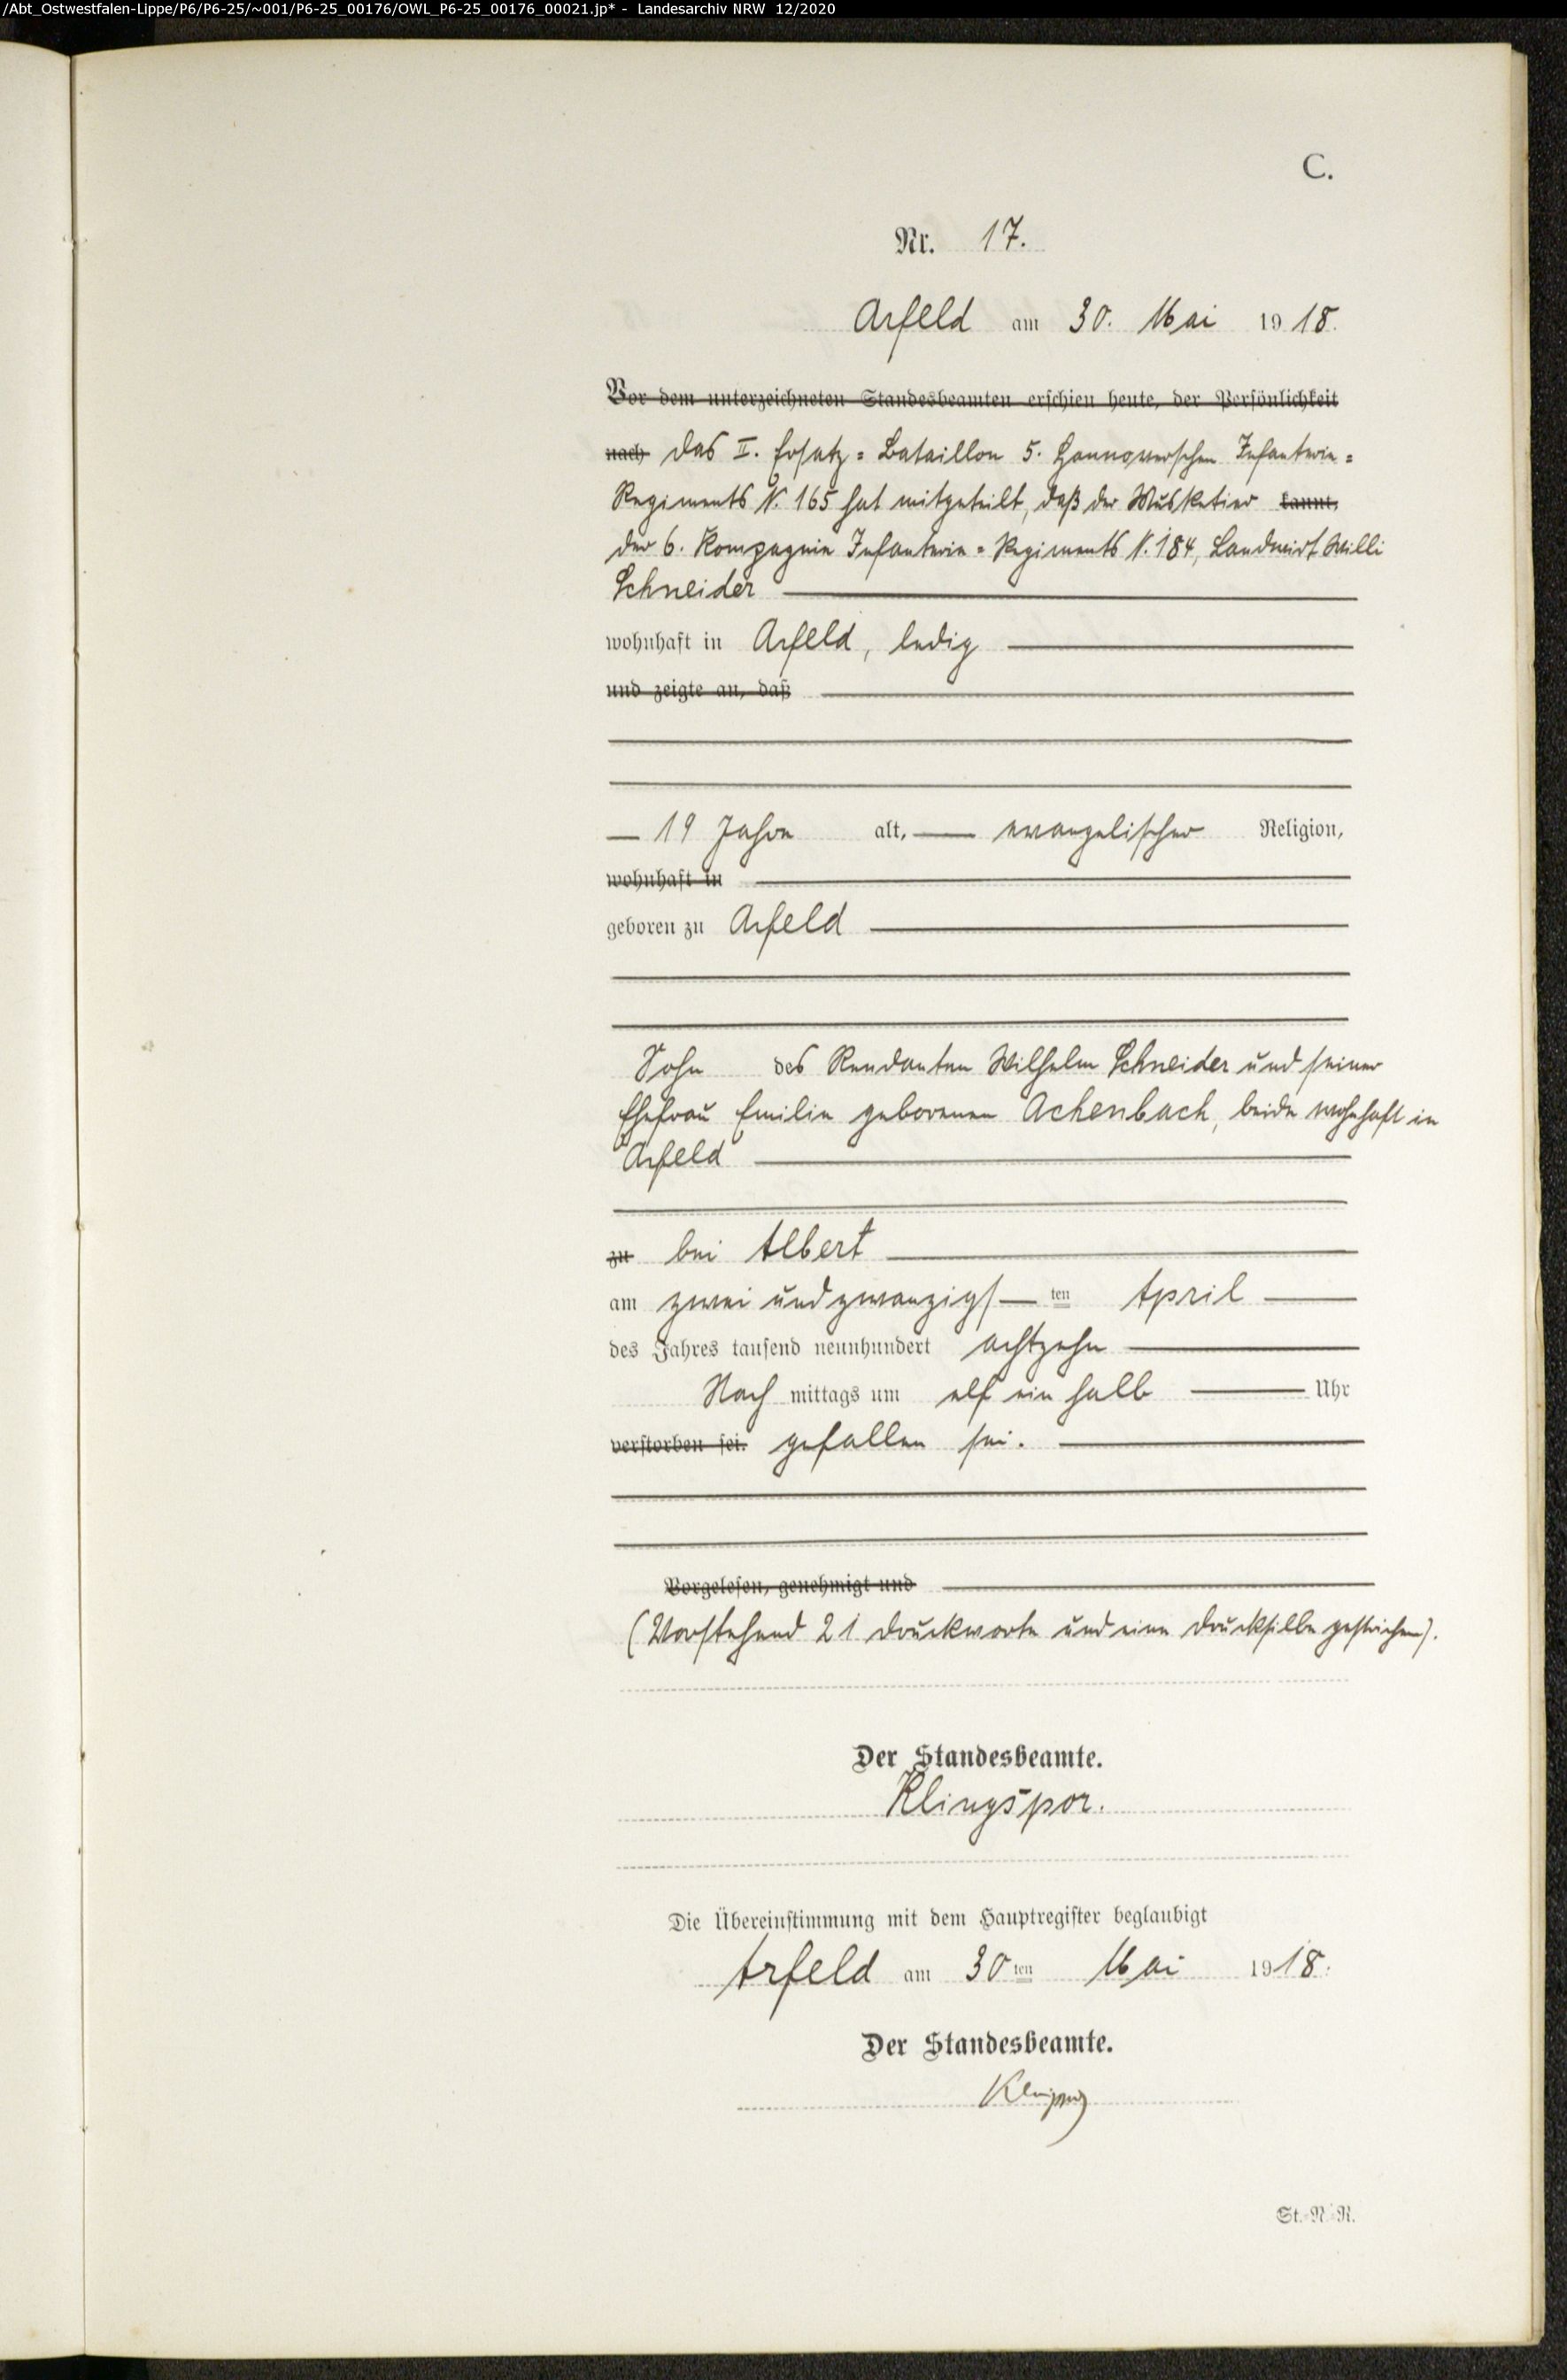 /Abt_Ostwestfalen-Lippe/P6/P6-25/~001/P6-25_00176/OWL_P6-25_00176_00021.jp* - Landesarchiv NRW 12/2020
C.
Nr. 17.
Arfeld am 30. Mai 1918.
Vor dem unterzeichneten Standesbeamten erschien heute, der Persönlichkeit
nach das II. Ersatz=Bataillon 5. Hannoverschen Infanterie=
Regiments N. 165 hat mitgeteilt, daß der Musketier kannt,
der 6. Kompagnie Infanterie=Regiments N. 184, Landwirt Willi
Schneider
wohnhaft in Arfeld, ledig
und zeigte an, daß
19 Jahre alt, evangelischer Religion,
wohnhaft in
geboren zu Arfeld
Sohn des Rendanten Wilhelm Schneider und seiner
Ehefrau Emilie geborenen Achenbach, beide wohnhaft in
Arfeld
zu bei Albert
am zwei und zwanzigsten April
des Jahres tausend neunhundert achtzehn
Nachmittags um elf ein halb Uhr
verstorben sei. gefallen sei.
Vorgelesen, genehmigt und
(Vorstehend 21 Druckworte und eine Drucksilbe gestrichen).
Der Standesbeamte.
Klingspor.
Die Übereinstimmung mit dem Hauptregister beglaubigt
Arfeld am 30ten Mai 1918.
Der Standesbeamte.
Klingspor
St.=N.=R.